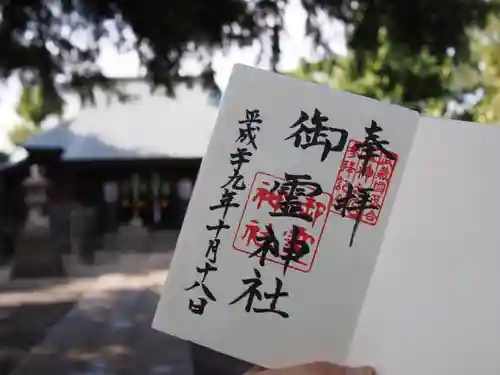 奉拝
御霊神社
平成二十九年十月十八日